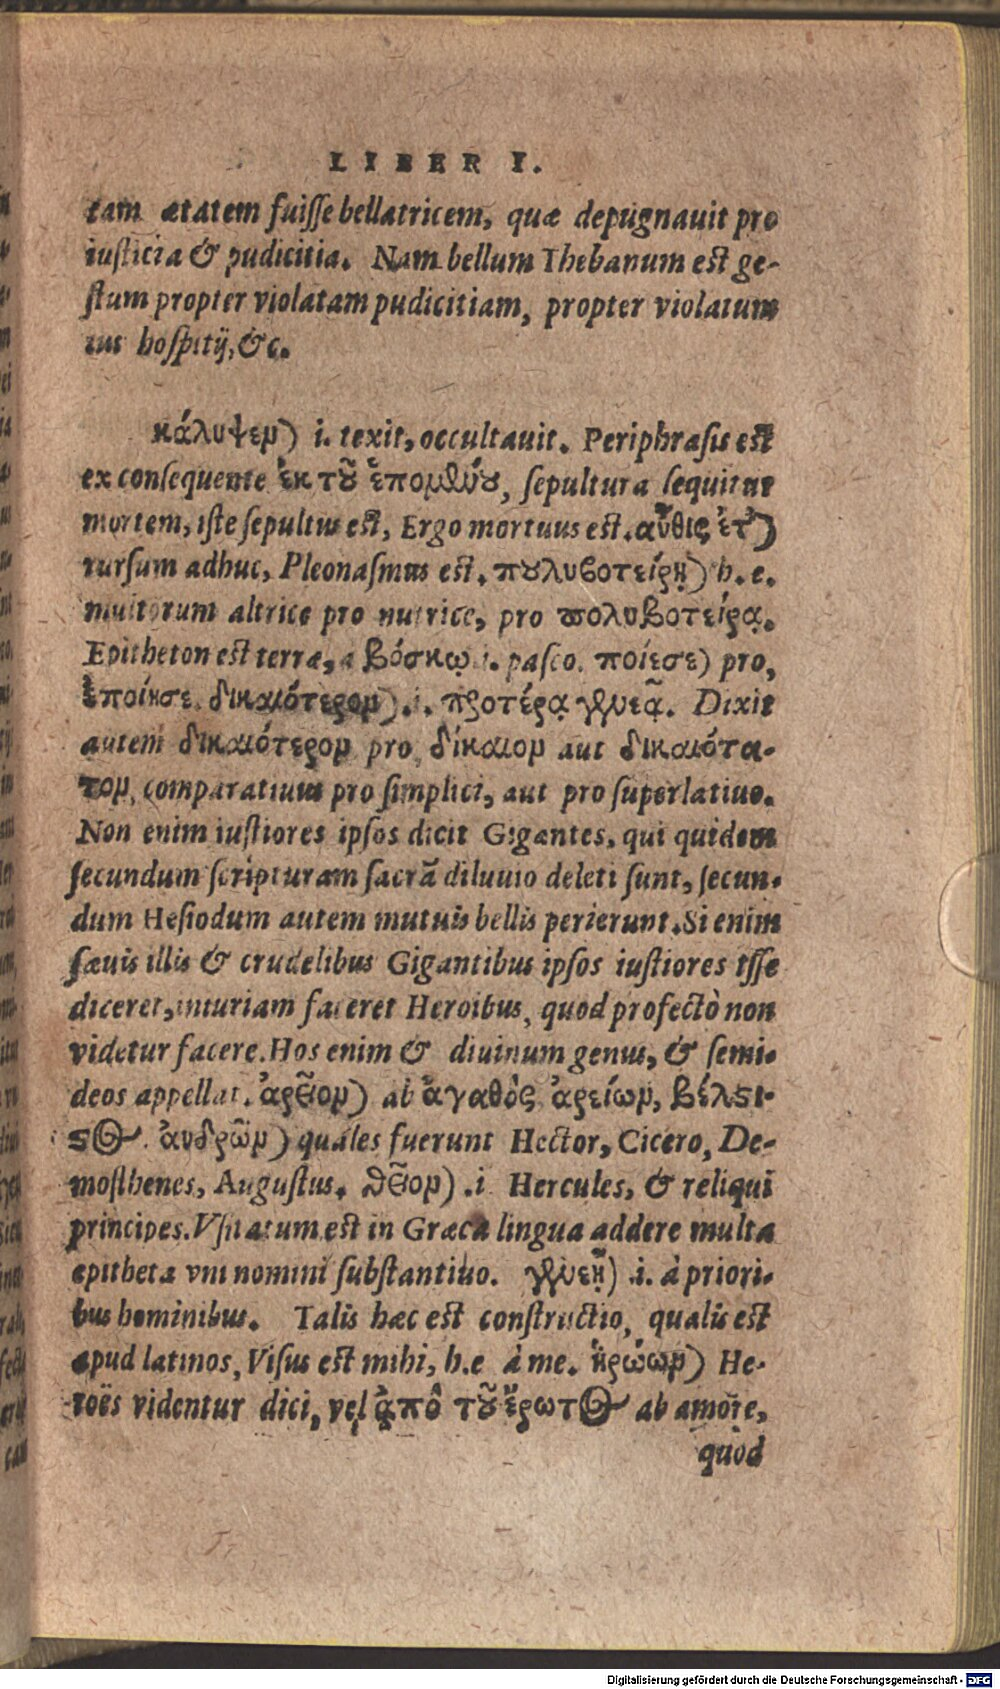 LIBER I.
tam ætatem fuisse bellatricem, quæ depugnauit pro
iusticia & pudicitia. Nam bellum Thebanum est ge-
stum propter violatam pudicitiam, propter violatum
ius hospitij, &c.
κάλυψεν) i. texit, occultauit. Periphrasis est
ex consequente ἐκ τοῦ ἑπομένου, sepultura sequitur
mortem, iste sepultus est, Ergo mortuus est. αὖθις ἔτ')
rursum adhuc, Pleonasmus est. πουλυβοτείρῃ) h. e.
multorum altrice pro nutrice, pro πολυβοτείρᾳ.
Epitheton est terræ, a βόσκω i. pasco. ποίησε) pro,
ἐποίησε. δικαιότερον) .i. προτέρᾳ γενεᾷ. Dixit
autem δικαιότερον pro δίκαιον aut δικαιότα-
τον, comparatiuum pro simplici, aut pro superlatiuo.
Non enim iustiores ipsos dicit Gigantes, qui quidem
secundum scripturam sacrā diluuio deleti sunt, secun-
dum Hesiodum autem mutuis bellis perierunt. Si enim
sæuis illis & crudelibus Gigantibus ipsos iustiores esse
diceret, iniuriam faceret Heroibus, quod profectò non
videtur facere. Hos enim & diuinum genus, & semi-
deos appellat. ἄρειον) ab ἀγαθὸς ἀρείων, βέλτι-
στος. ἀνδρῶν) quales fuerunt Hector, Cicero, De-
mosthenes, Augustus. θεῖον) .i. Hercules, & reliqui
principes. Vsitatum est in Græca lingua addere multa
epitheta vni nomini substantiuo. γενεῇ) .i. à priori-
bus hominibus. Talis hæc est constructio, qualis est
apud latinos, Visus est mihi, h. e à me. ἡρώων) He-
roës videntur dici, vel ἀπὸ τοῦ ἔρωτος ab amore,
quòd
Digitalisierung gefördert durch die Deutsche Forschungsgemeinschaft - DFG